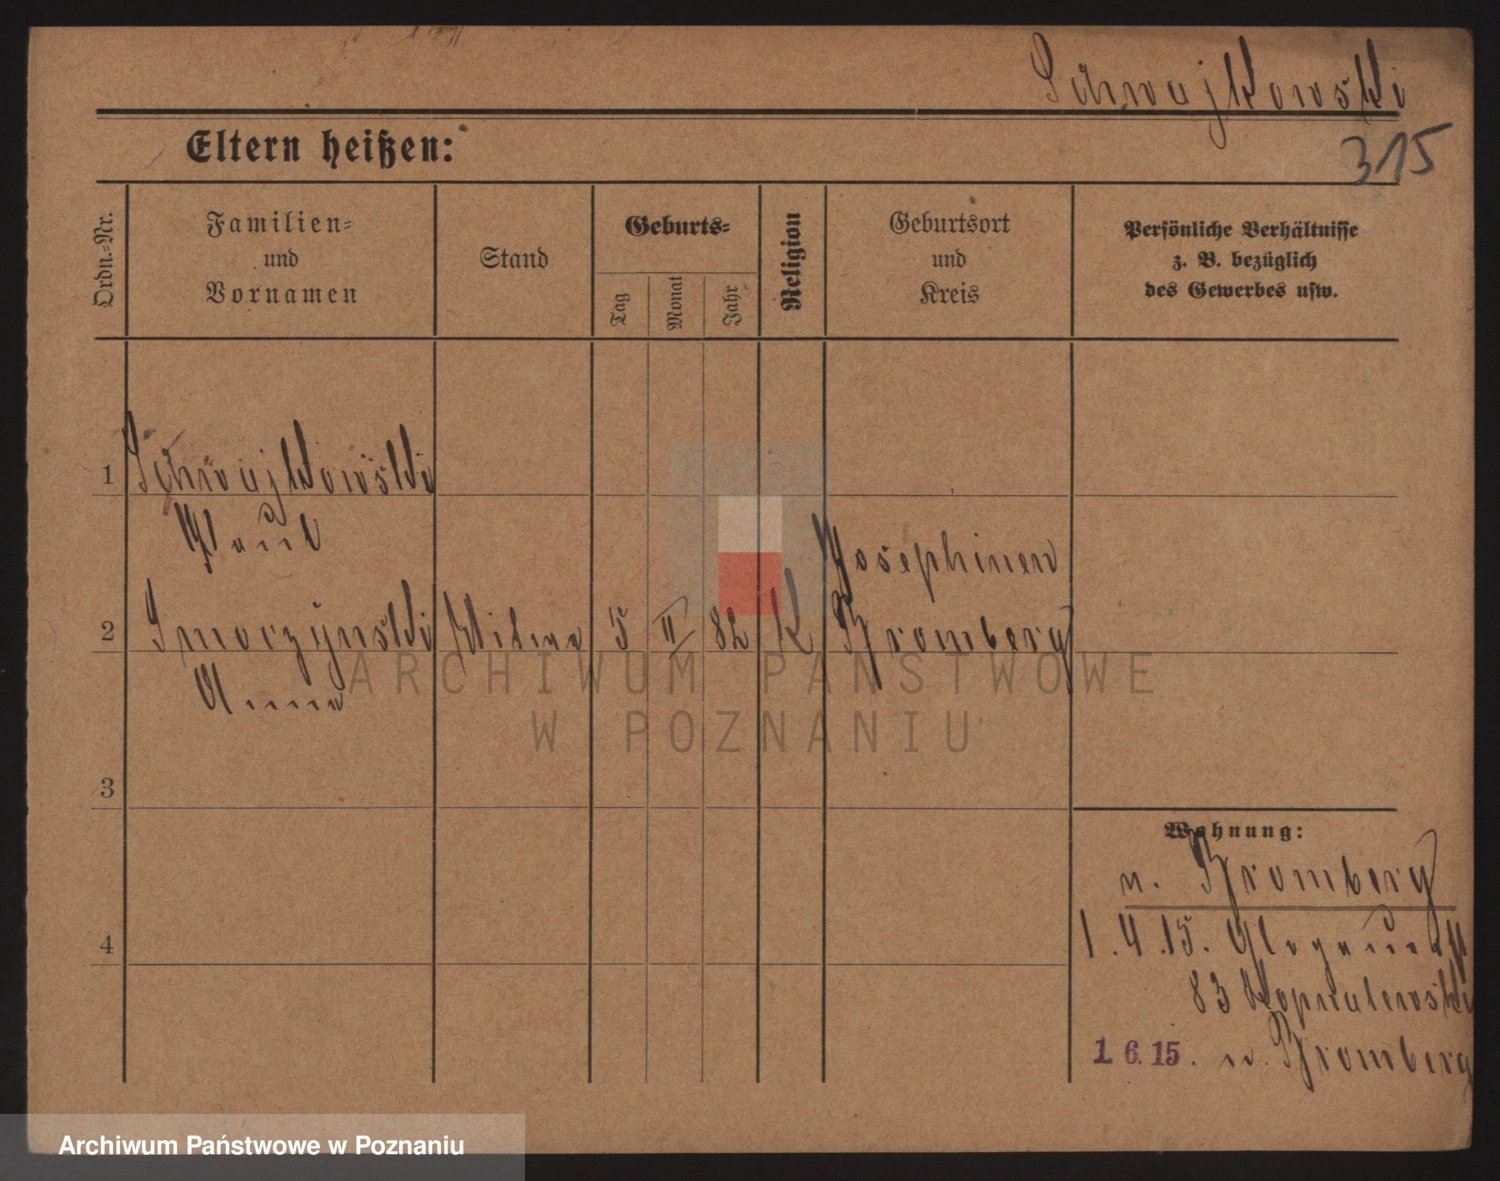 Schwajkowski
315
Eltern heißen:
Ordn.-Nr.
Familien-
und
Vornamen
Stand
Geburts-
Tag
Monat
Jahr
Religion
Geburtsort
und
Kreis
Persönliche Verhältnisse
z. B. bezüglich
des Gewerbes usw.
1 Schwajkowski
Paul
Josephinen
2 Smorzynski Witwe 5 II 82 K Bromberg
Anna
ARCHIWUM PAŃSTWOWE
W POZNANIU
3
Wohnung:
n. Bromberg
4
1.4.15. Glogauerstr
83 Kopralewski
1.6.15. n. Bromberg
Archiwum Państwowe w Poznaniu